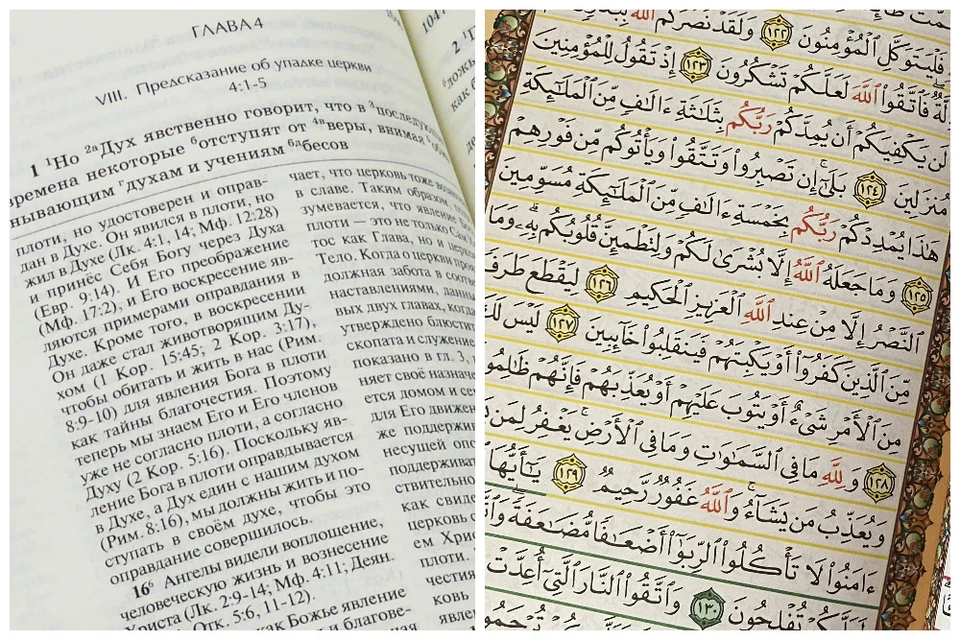 ГЛАВА 4
VIII. Предсказание об упадке церкви
4:1-5
1 ¹Но ²ᵃДух явственно говорит, что в ³последую
времена некоторые ᵇотступят от ⁴ᵇверы, внимая
нывающим ᵍдухам и учениям ⁶ᵈбесов
плоти, но удостоверен и оправ-
дан в Духе. Он явился в плоти, но
жил в Духе (Лк. 4:1, 14; Мф. 12:28)
и принёс Себя Богу через Духа
(Евр. 9:14). И Его преображение
(Мф. 17:2), и Его воскресение яв-
ляются примерами оправдания в
Духе. Кроме того, в воскресении
Он даже стал животворящим Ду-
хом (1 Кор. 15:45; 2 Кор. 3:17),
чтобы обитать и жить в нас (Рим.
8:9-10) для явления Бога в плоти
как тайны благочестия. Поэтому
теперь мы знаем Его и Его членов
уже не согласно плоти, а согласно
Духу (2 Кор. 5:16). Поскольку яв-
ление Бога в плоти оправдывается
в Духе, а Дух един с нашим духом
(Рим. 8:16), мы должны жить и по-
ступать в своём духе, чтобы это
оправдание совершилось.
16⁶ Ангелы видели воплощение,
человеческую жизнь и вознесение
Христа (Лк. 2:9-14; Мф. 4:11; Деян.
Отк. 5:6, 11-12).
как Божье явление
и благове-
чает, что церковь тоже
в славе. Таким образом,
зумевается, что явление
плоти — это не только Сам
тос как Глава, но и церк
Тело. Когда о церкви
должная забота в соотв
наставлениями, данны
вых двух главах, когда
утверждено блюсти
скопата и служение
показано в гл. 3,
няет своё назначе
ется домом и
для Его движен
же поддержи
несущей опо
поддерживат
ствительно
как свиде
церковь
ем Хрис
плоти.
честия
ковь
явле
فَلْيَتَوَكَّلِ ٱلْمُؤْمِنُونَ ١٢٢ وَلَقَدْ نَصَرَكُمُ ٱللَّهُ
فَٱتَّقُوا۟ ٱللَّهَ لَعَلَّكُمْ تَشْكُرُونَ ١٢٣ إِذْ تَقُولُ لِلْمُؤْمِنِينَ
لَن يَكْفِيَكُمْ أَن يُمِدَّكُمْ رَبُّكُم بِثَلَـٰثَةِ ءَالَـٰفٍ مِّنَ ٱلْمَلَـٰٓئِكَةِ
مُنزَلِينَ ١٢٤ بَلَىٰٓ ۚ إِن تَصْبِرُوا۟ وَتَتَّقُوا۟ وَيَأْتُوكُم مِّن فَوْرِهِمْ
هَـٰذَا يُمْدِدْكُمْ رَبُّكُم بِخَمْسَةِ ءَالَـٰفٍ مِّنَ ٱلْمَلَـٰٓئِكَةِ مُسَوِّمِينَ
١٢٥ وَمَا جَعَلَهُ ٱللَّهُ إِلَّا بُشْرَىٰ لَكُمْ وَلِتَطْمَئِنَّ قُلُوبُكُم بِهِۦ ۗ وَمَا
ٱلنَّصْرُ إِلَّا مِنْ عِندِ ٱللَّهِ ٱلْعَزِيزِ ٱلْحَكِيمِ ١٢٦ لِيَقْطَعَ طَرَفًا
مِّنَ ٱلَّذِينَ كَفَرُوٓا۟ أَوْ يَكْبِتَهُمْ فَيَنقَلِبُوا۟ خَآئِبِينَ ١٢٧ لَيْسَ لَكَ
مِنَ ٱلْأَمْرِ شَىْءٌ أَوْ يَتُوبَ عَلَيْهِمْ أَوْ يُعَذِّبَهُمْ فَإِنَّهُمْ ظَـٰلِمُو
١٢٨ وَلِلَّهِ مَا فِى ٱلسَّمَـٰوَٰتِ وَمَا فِى ٱلْأَرْضِ ۚ يَغْفِرُ لِمَن
وَيُعَذِّبُ مَن يَشَآءُ ۚ وَٱللَّهُ غَفُورٌ رَّحِيمٌ ١٢٩ يَـٰٓأَيُّهَا
ءَامَنُوا۟ لَا تَأْكُلُوا۟ ٱلرِّبَوٰٓا۟ أَضْعَـٰفًا مُّضَـٰعَفَةً ۖ
تُفْلِحُونَ ١٣٠ وَٱتَّقُوا۟ ٱلنَّارَ ٱلَّتِىٓ أُعِدَّتْ